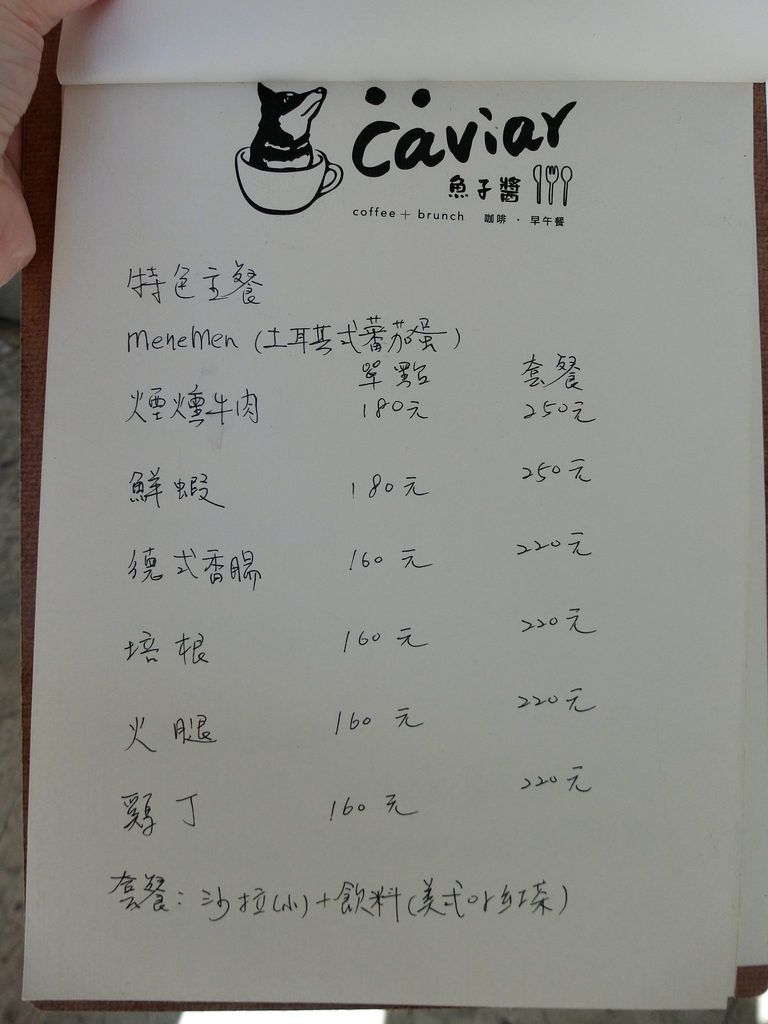 caviar
魚子醬
coffee + brunch 咖啡·早午餐
特色主餐
menemen (土耳其式蕃茄蛋)
單點 套餐
煙燻牛肉 180元 250元
鮮蝦 180元 250元
德式香腸 160元 220元
培根 160元 220元
火腿 160元 220元
雞丁 160元 220元
套餐: 沙拉(小)+飲料(美式or紅茶)